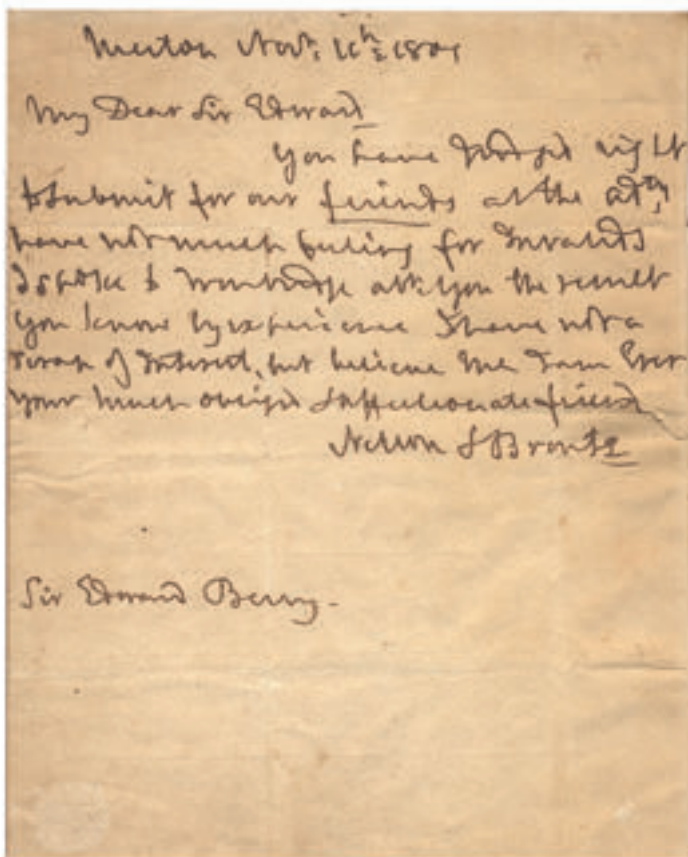 Merton Novr: 11th: 1801
My Dear Sir Edward
You have Judged right
to submit for our friends at the adty,
have not much feeling for Invalids
I spoke to Troubridge ask you the result
you know by experience I have not a
scrap of Interest, but believe me I am Ever
your much obliged & affectionate friend
Nelson & Bronte
Sir Edward Berry.